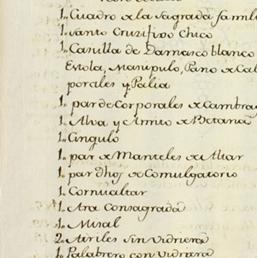 1.. Cuadro de la Sagrada famil
1.. Santo Cruzifixo Chico
1.. Casulla de Damasco blanco
Estola, Manipulo, Pano de Cal
porales y Palia
1.. par de Corporales de Cambra
1.. Alva y Amito de Bretaña
1.. Cingulo
1.. par de Manteles de Altar
1.. par dhos de Comulgatorio
1.. Cornualtar
1.. Ara Consagrada
1.. Misal
2.. Atriles Sin Vidriera
1.. Palabrero con Vidriera